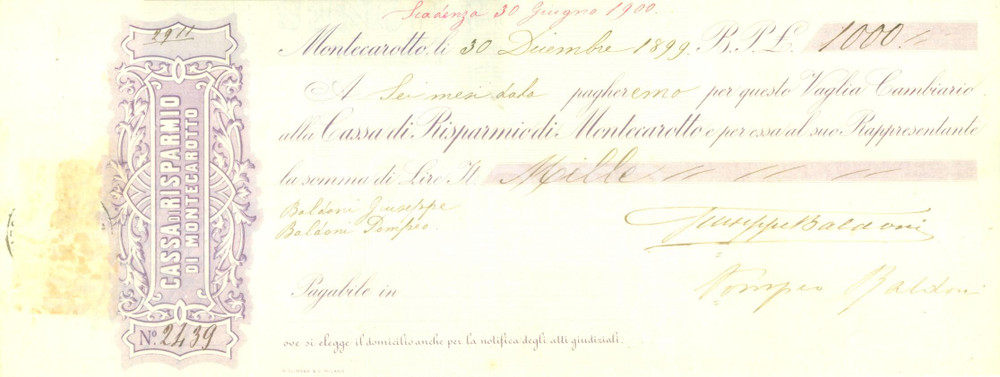 Scadenza 30 Giugno 1900.
2911
Montecarotto, li 30 Dicembre 1899. B.P.L. 1000
A Sei mesi data pagheremo per questo Vaglia Cambiario
alla Cassa di Risparmio di Montecarotto e per essa al suo Rappresentante
la somma di Lire It. Mille
Baldoni Giuseppe
Baldoni Pompeo
Giuseppe Baldoni
Pompeo Baldoni
Pagabile in
ove si elegge il domicilio anche per la notifica degli atti giudiziali.
CASSA DI RISPARMIO
DI MONTECAROTTO
No. 2439